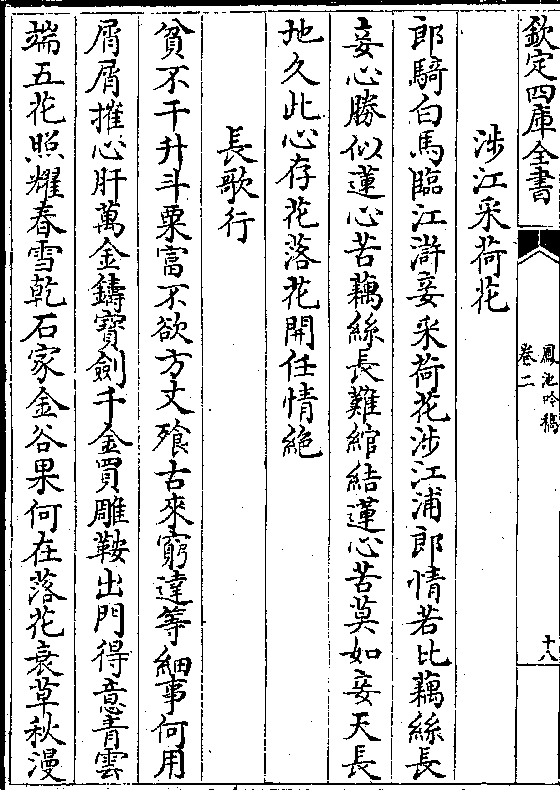 欽定四庫全書
鳳池吟稿
卷二
十八
涉江采荷花
郎騎白馬臨江滸妾采荷花涉江浦郎情若比藕絲長
妾心勝似蓮心苦藕絲長難綰結蓮心苦莫如妾天長
地久此心存花落花開任情絶
長歌行
貧不干升斗粟富不欲方丈飱古來窮達等細事何用
屑屑摧心肝萬金鑄寶劍千金買雕鞍出門得意青雲
端五花照耀春雪乾石家金谷果何在落花衰草秋漫